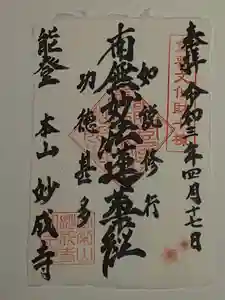 奉拝 令和三年四月十七日
如説修行
南無妙法蓮華経
功徳甚多
能登 本山 妙成寺